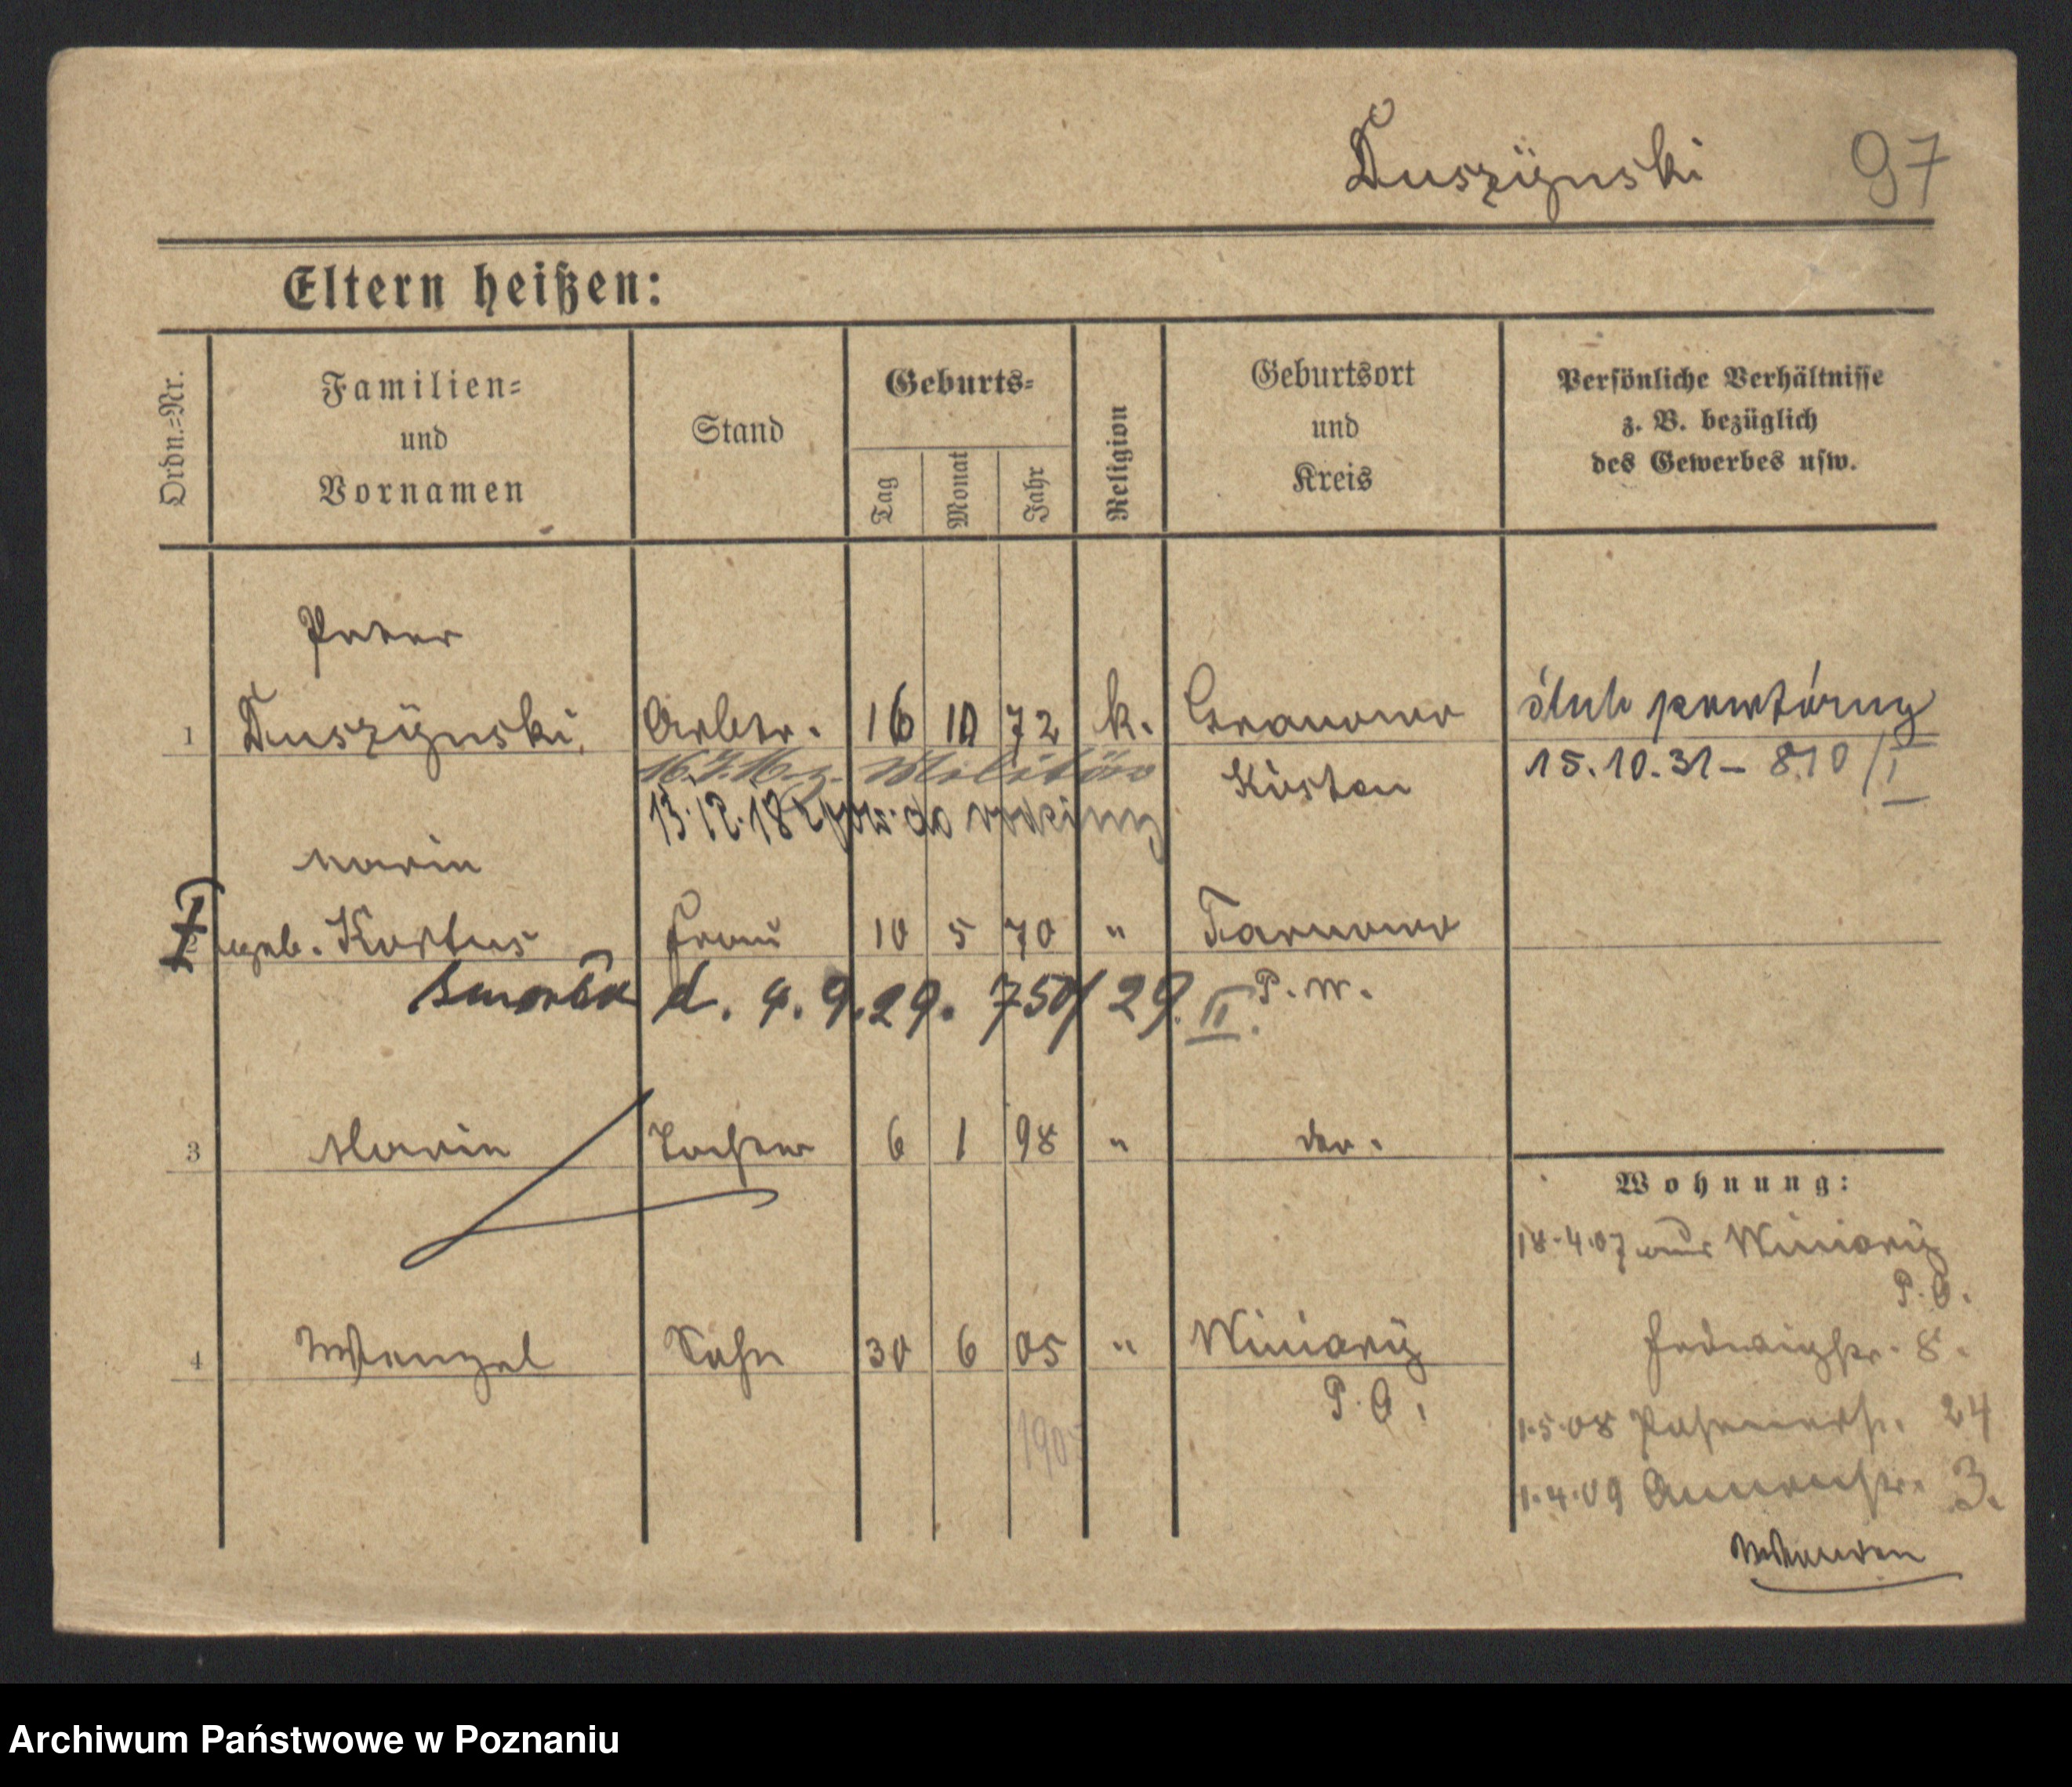 Duszÿnski 97
Eltern heißen:
Ordn.=Nr.
Familien=
und
Vornamen
Stand
Geburts=
Tag
Monat
Jahr
Religion
Geburtsort
und
Kreis
Persönliche Verhältnisse
z. B. bezüglich
des Gewerbes usw.
Peter
1 Duszÿnski, Arbtr. 16 10 72 k. Granowo ślub powtórny
16.7.16 z. Militär Kosten 15.10.31 – 810/I
13.12.18 do rodziny
Marie
geb. Kortus Frau 10 5 70 " Tarnowo
zmarła d. 4.9.29. 750/29. II. P. W.
3 Marie Tochter 6 1 98 " do.
Wohnung:
18.4.07 aus Winiarÿ
P. O.
4 Wenzel Sohn 30 6 05 " Winiarÿ Hedwigstr. 8.
P. O.
1905
1.5.08 Posenerstr. 24
1.4.09 Annenstr. 3.
Wenden
Archiwum Państwowe w Poznaniu